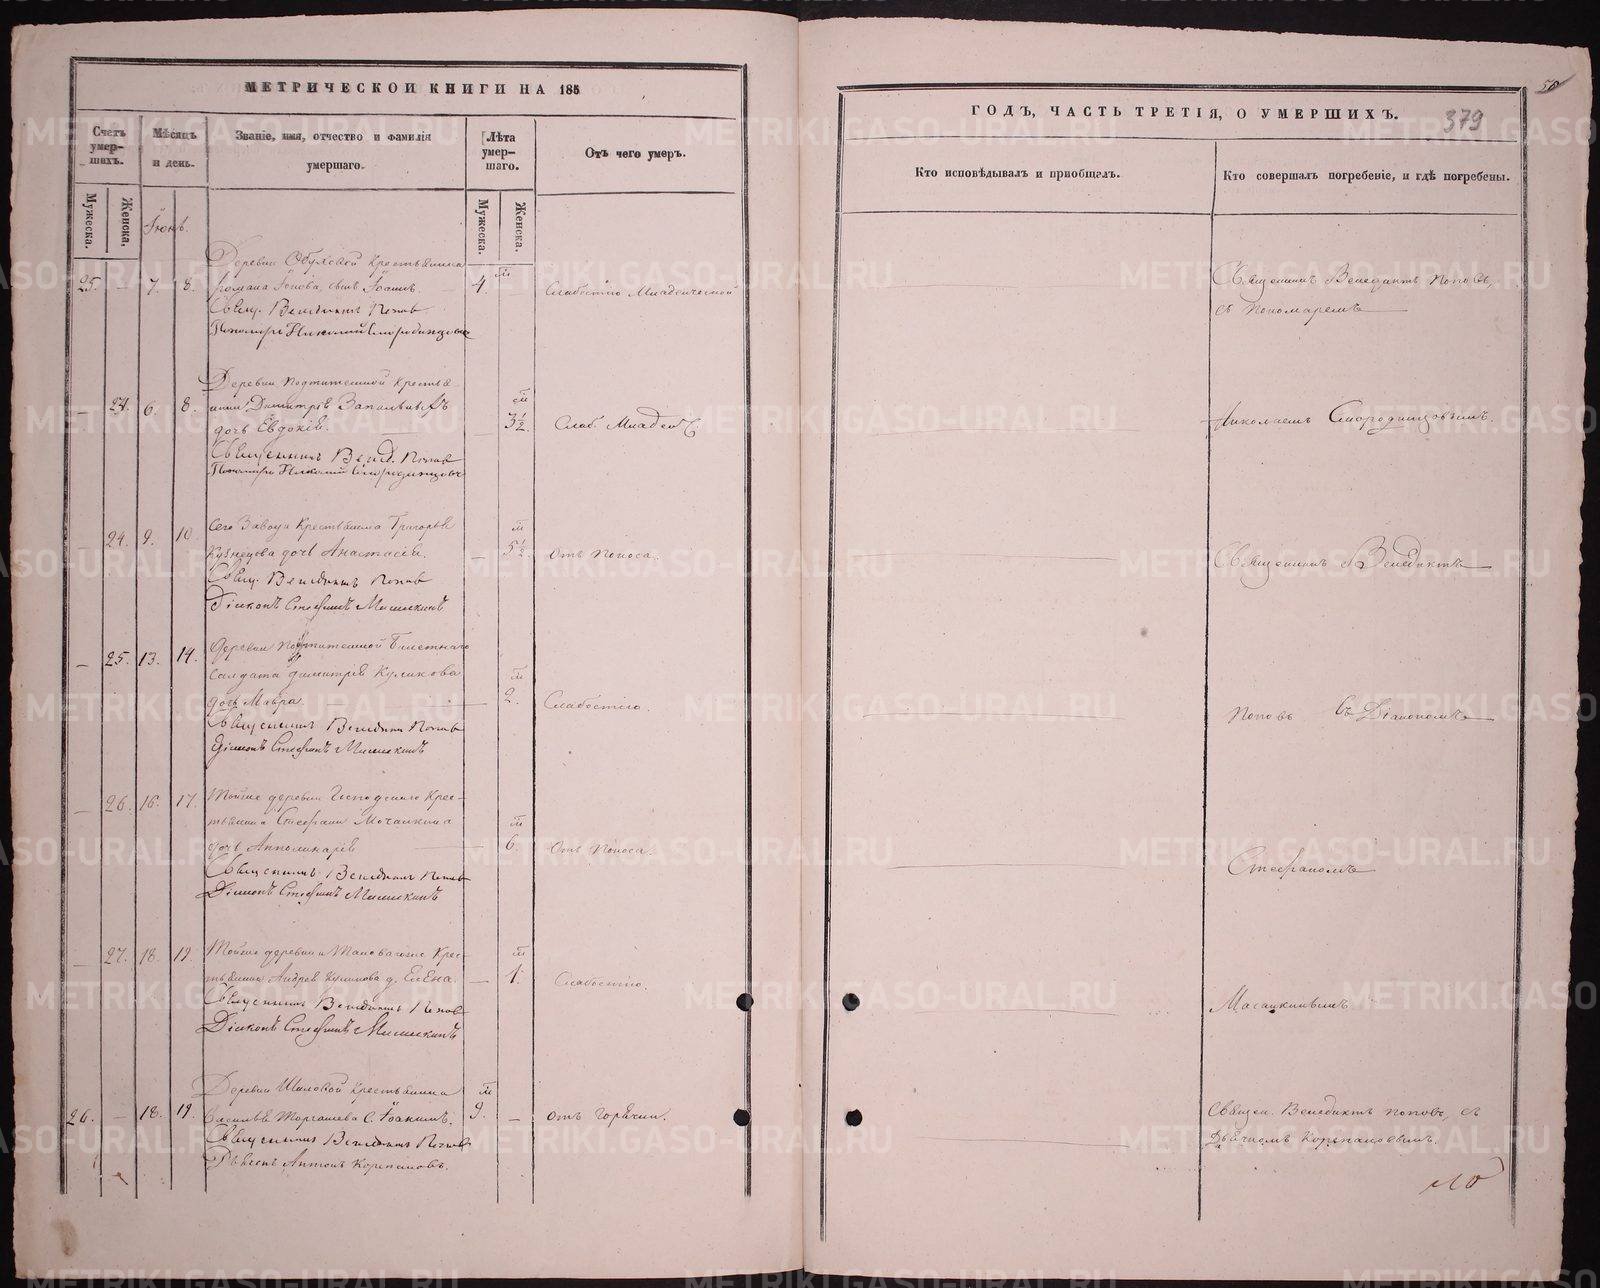 МЕТРИЧЕСКОЙ КНИГИ НА 185
Счетъ умер-
шихъ.
Мѣсяцъ
и день.
Званіе, имя, отчество и фамилія
умершаго.
Лѣта
умер-
шаго.
Отъ чего умеръ.
Мужеска.
Женска.
Мужеска.
Женска.
Іюнь.
Деревни Обуховой крестьянина
25. - 7. 8. Романа Іонова, сынъ Іоаннъ. 4. м Слабостію Младенческой
Свящ. Венедиктъ Попов
Пономарь Николай Смородинцовъ
Деревни крестья-
- 6. 8. нина Димитрія дочь Евдокія. 3 1/2 м Слаб. Младен
Священникъ Венед. Попов
Пономарь Николай Смородинцовъ
Сего Завода Крестьянина Григорья
- 24. 9. 10. Кузнецова дочь Анастасія. - 5 1/2 м Отъ Поноса.
Свящ. Венедиктъ Попов
Діаконъ Стефанъ
Деревни Билетнаго
- 25. 13. 14. солдата Димитрія Куликова
дочь Мавра. 2. м Слабостію.
Священникъ Венедиктъ Попов
Діаконъ Стефанъ
- 26. 16. 17. Тойже деревни Господскаго Крес-
тьянина Стефана Мочалкина
дочь Апполинарія 6. м Отъ Поноса.
Священникъ Венедиктъ Попов
Діаконъ Стефанъ
- 27. 18. 19. Тойже деревни Таковагоже Крес-
тьянина Андрея Куликова д. Елена. - 1. м Слабостію.
Священникъ Венедиктъ Попов
Діаконъ Стефанъ
Деревни Шиловой крестьянина
26. - 18. 19. Василья Торгашева с. Іоакимъ. 9. м - Отъ Горячки.
Священникъ Венедиктъ Попов
Дьячекъ Антонъ Корепановъ.
50
379
ГОДЪ, ЧАСТЬ ТРЕТІЯ, О УМЕРШИХЪ.
Кто исповѣдывалъ и пріобщалъ.
Кто совершалъ погребеніе, и гдѣ погребены.
Священникъ Венедиктъ Поповъ,
съ Пономаремъ
Николаемъ Смородинцовымъ.
Священникъ Венедиктъ
Поповъ съ Діакономъ
Стефаномъ
Священ. Венедиктъ Поповъ, съ
Дьячкомъ Корепановымъ.
METRIKI.GASO-URAL.RU